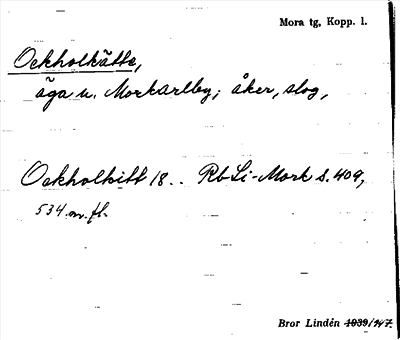 Mora tg, Kopp. l.
Ockholkätte,
äga u. Morkarlby; åker, slog,
Ockholkitt 18.. Rb Li-Mork s. 409,
534 m. fl.
Bror Lindén 1939/47.